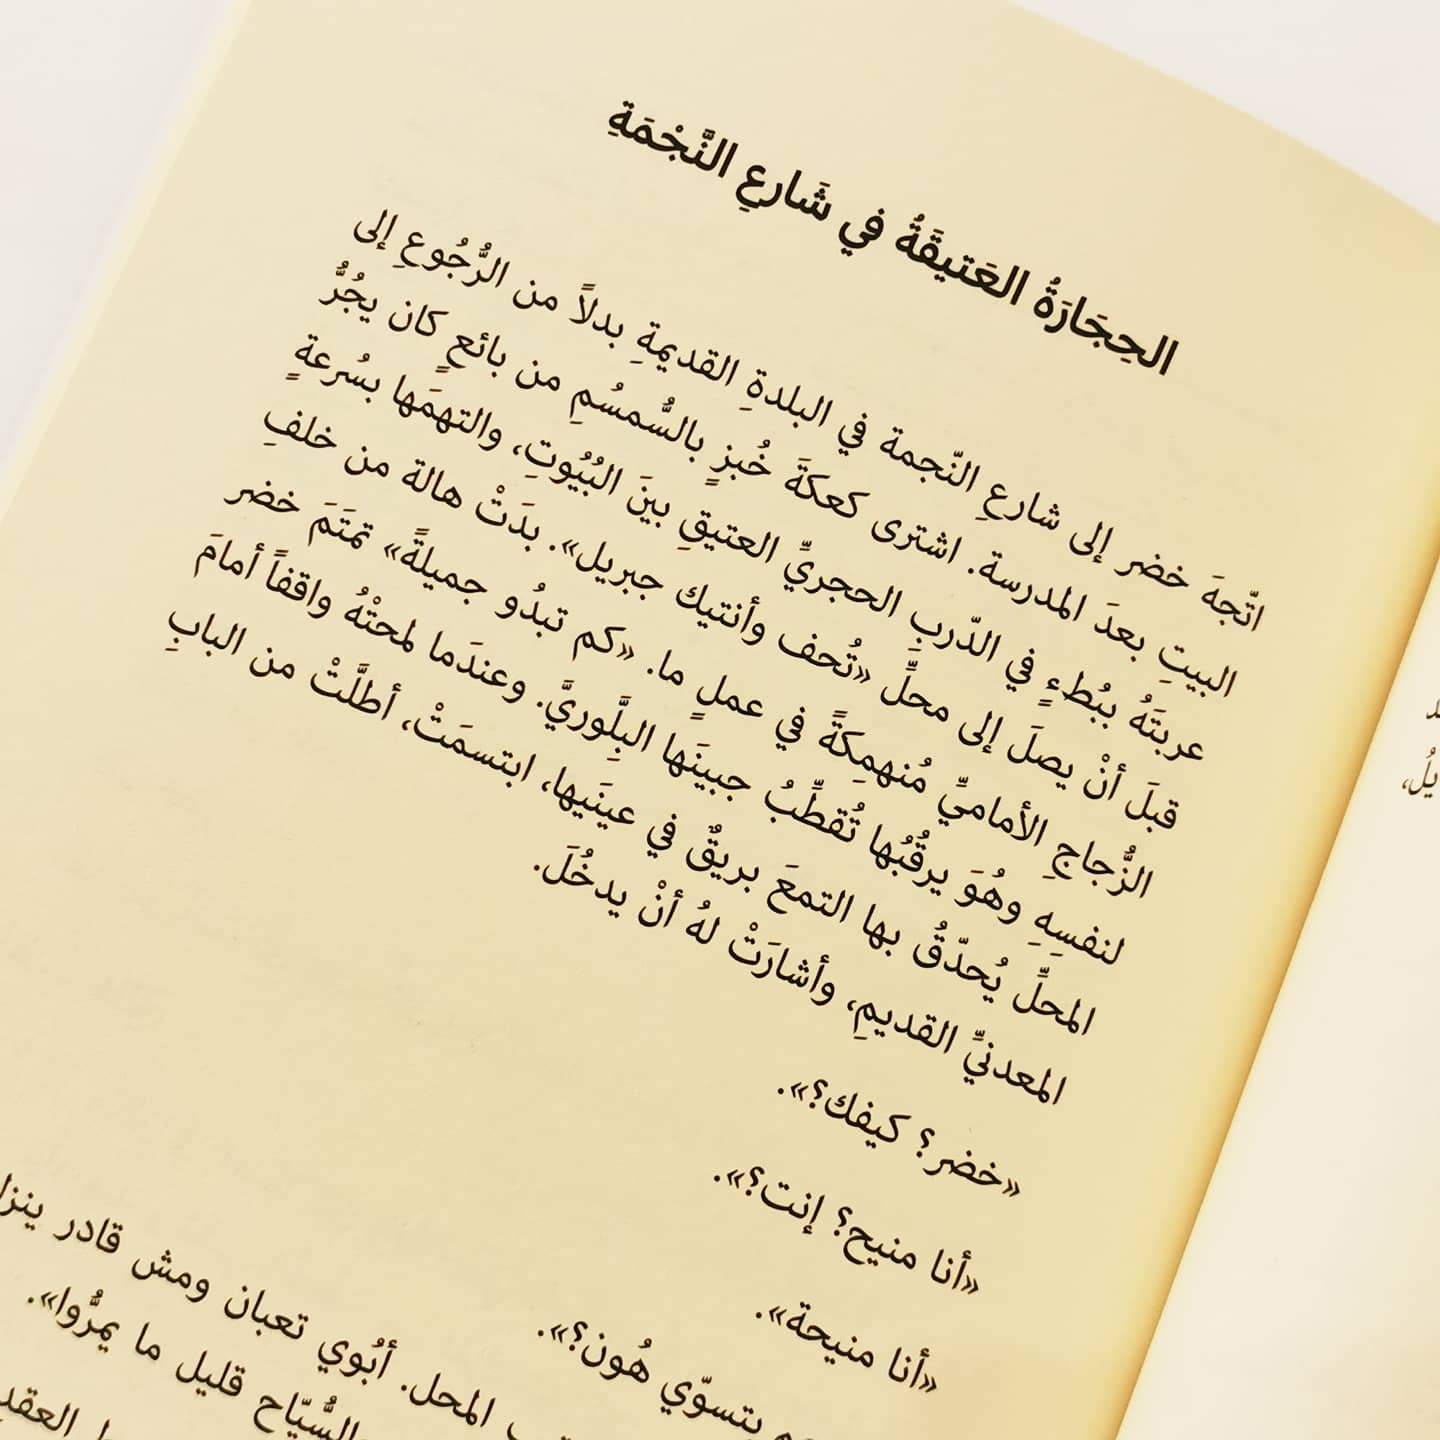 الحِجَارَةُ العَتيقَةُ في شَارعِ النَّجْمَةِ
اتّجهَ خضر إلى شارعِ النّجمة في البلدةِ القديمةِ بدلاً من الرُّجُوعِ إلى
البيتِ بعدَ المدرسة. اشترى كعكةَ خُبزٍ بالسُّمسُمِ من بائعٍ كان يجُرُّ
عربتَهُ ببُطءٍ في الدّربِ الحجريِّ العتيقِ بينَ البُيُوتِ، والتهمَها بسُرعةٍ
قبلَ أنْ يصلَ إلى محلِّ «تُحف وأنتيك جبريل». بدَتْ هالة من خلفِ
الزُّجاجِ الأماميِّ مُنهمِكةً في عملٍ ما. «كم تبدُو جميلةً» تمتَمَ خضر
لنفسِهِ وهُوَ يرقُبُها تُقطِّبُ جبينَها البلِّوريَّ. وعندَما لمحتْهُ واقفاً أمامَ
المحلِّ يُحدّقُ بها التمعَ بريقٌ في عينَيها، ابتسمَتْ، أطلَّتْ من البابِ
المعدنيِّ القديمِ، وأشارَتْ لهُ أنْ يدخُلَ.
«خضر؟ كيفك؟».
«أنا منيح؟ إنت؟».
«أنا منيحة».
بتسوّي هُون؟».
المحل. أبُوي تعبان ومش قادر
والسُّيّاح قليل ما يمرُّوا».
العقد